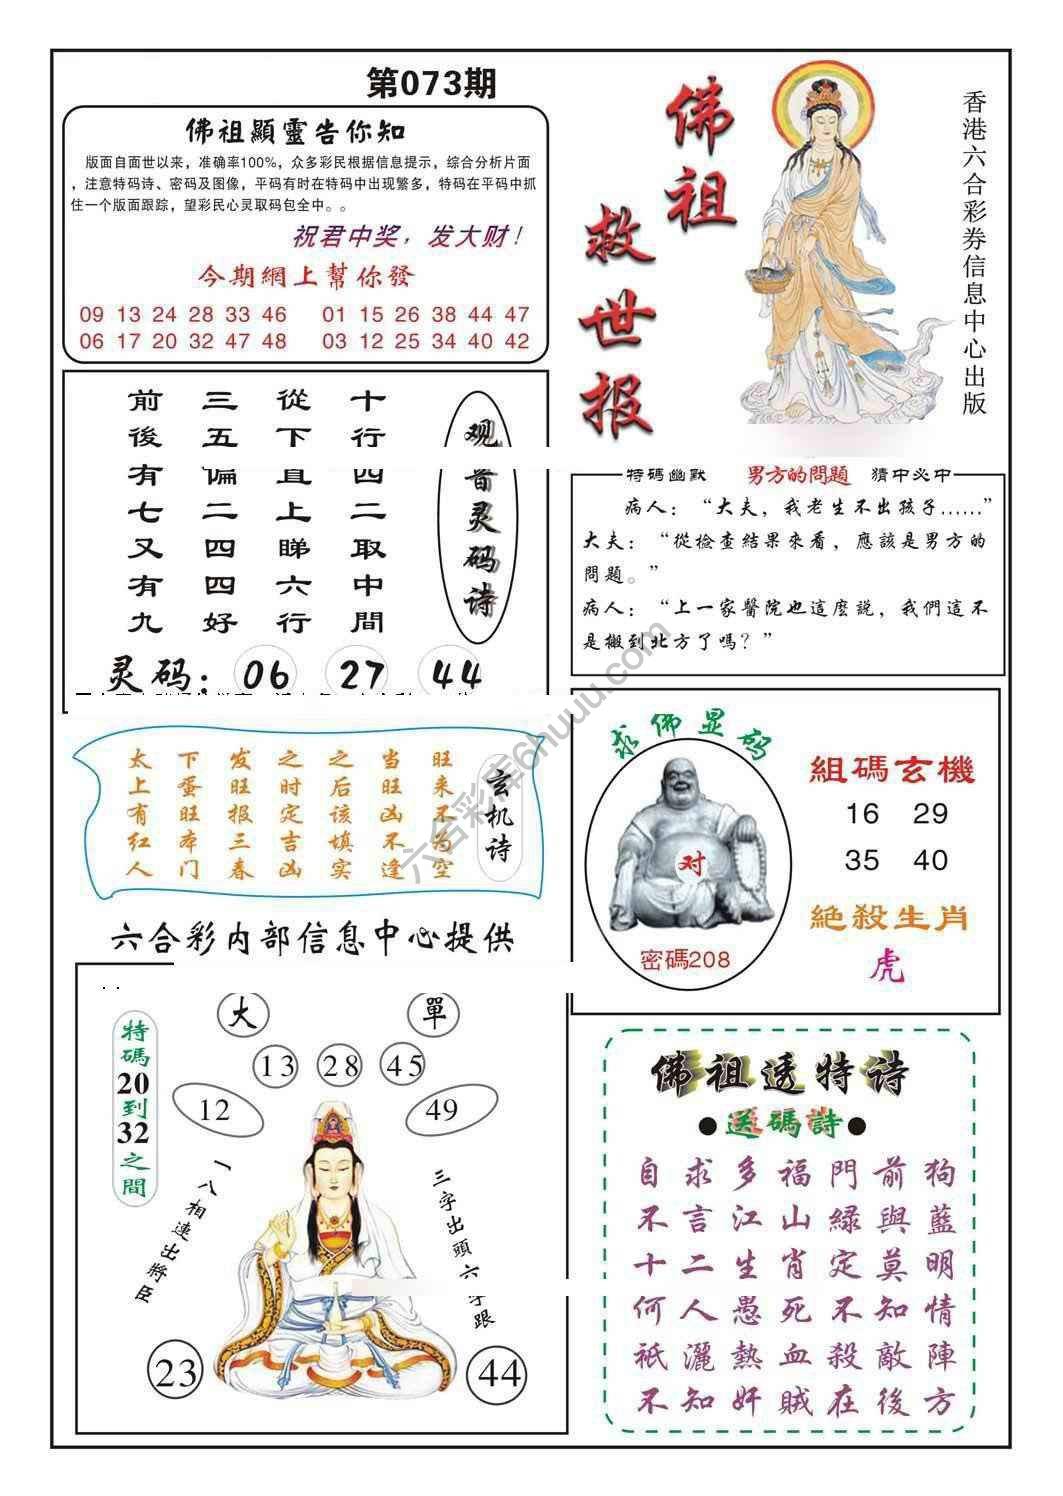 第073期
佛祖顯靈告你知
版面自面世以来，准确率100%，众多彩民根据信息提示，综合分析片面
，注意特码诗、密码及图像，平码有时在特码中出现繁多，特码在平码中抓
住一个版面跟踪，望彩民心灵取码包全中。。
祝君中奖，发大财！
今期網上幫你發
09 13 24 28 33 46 01 15 26 38 44 47
06 17 20 32 47 48 03 12 25 34 40 42
佛祖
救世报
香港六合彩券信息中心出版
观音灵码诗
十行四二取中間
從下直上睇六行
三五偏二四四好
前後有七又有九
灵码：06 27 44
特碼幽默 男方的問題 猜中必中
病人：“大夫，我老生不出孩子……”
大夫：“從檢查結果來看，應該是男方的
問題。”
病人：“上一家醫院也這麽説，我們這不
是搬到北方了嗎？”
玄机诗
旺来不为空
当旺凶不逢
之后该填实
之时定吉凶
发旺报三春
下蛋旺本门
太上有红人
求佛显码
对
密碼208
組碼玄機
16 29
35 40
絶殺生肖
虎
六合彩内部信息中心提供
大 單
13 28 45
12 49
特碼20到32之間
一八相連出將臣
三字出頭六字跟
23 44
佛祖透特诗
●送碼詩●
自求多福門前狗
不言江山緑與藍
十二生肖定莫明
何人愚死不知情
祇灑熱血殺敵陣
不知奸賊在後方
六合彩库6huuu.com